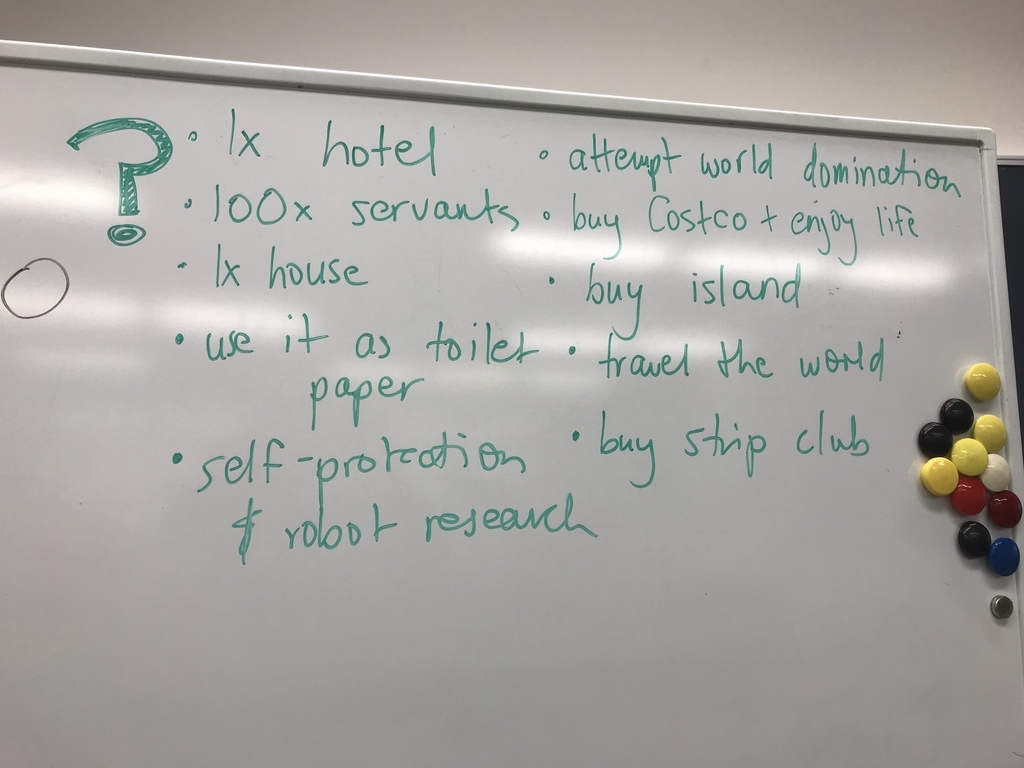 ?
• 1x hotel
• 100x servants
• 1x house
• use it as toilet
paper
• self-protection
& robot research
• attempt world domination
• buy Costco + enjoy life
• buy island
• travel the world
• buy strip club